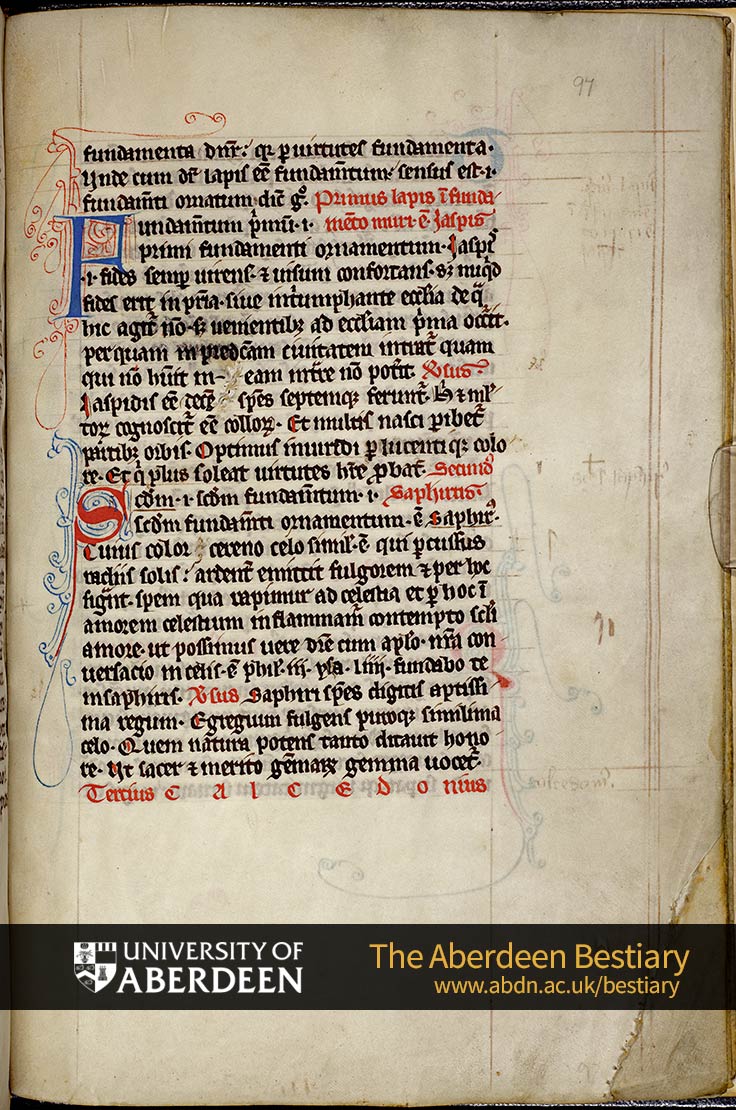 97
fundamenta dnr̄: q̄ p uirtutes fundamenta.
Unde cum dr̄ lapis eē fundam̄tum sensus est .i.
fundam̄ti ornatum dic̄ gͦ. Primus lapis ī funda
undam̄tum p̄mū .i. mēto muri ē Jaspis
primi fundamenti ornamentum. Jasp
.i. fides semp uirens. ⁊ uisum confortans. sꝫ nūq̄d
fides erit in pr̄ia. siue in triumphante ecc̄lia de q̄
hic agit̄ nō. sꝫ uenientibꝫ ad eccliam p̄ma occ̄it.
per quam in predc̄am ciuitatem intrat̄ quam
qui nō hūit in eam int̄re nō pot̄it. Ꝟsus
Jaspidis eē dece spēs septemqꝫ ferunt̄.
cognoscit̄ eē collorꝝ. Et multis nasci pibet̄
partibꝫ orbis. Optimus in uirdi p lucenti qꝫ colo
re. Et q̄ plus soleat uirtutes hr̄e ꝓbat̄. Secund9
cdm̄ .i. scdm̄ fundam̄tum .i. Saphirus.
scdm̄ fundam̄ti ornamentum. ē Saphir9.
Cuius color cereno celo simil' ē qui p̄cussus
radiis solis: ardent̄ emittit fulgorem ⁊ per hoc
figr̄nt. spem qua rapimur ad celestia et p̱ hoc ī
amorem celestium inflammam̄ contempto scl̄i
amore. ut possimus uere dr̄e cum ap̄lo. nr̄a con
uersacio in celis. ē phil'. iii. ysa. liiii. fundabo te
in saphiris. Ꝟsus Saphiri spēs digitis aptissi
ma regum. Egregium fulgens puroqꝫ simillima
celo. Quem natura potens tanto ditauit hono
re. Ut sacer ⁊ merito gēmarꝝ gemma uocet̄.
Tertius C A L C E D O nius
UNIVERSITY OF
ABERDEEN
The Aberdeen Bestiary
www.abdn.ac.uk/bestiary